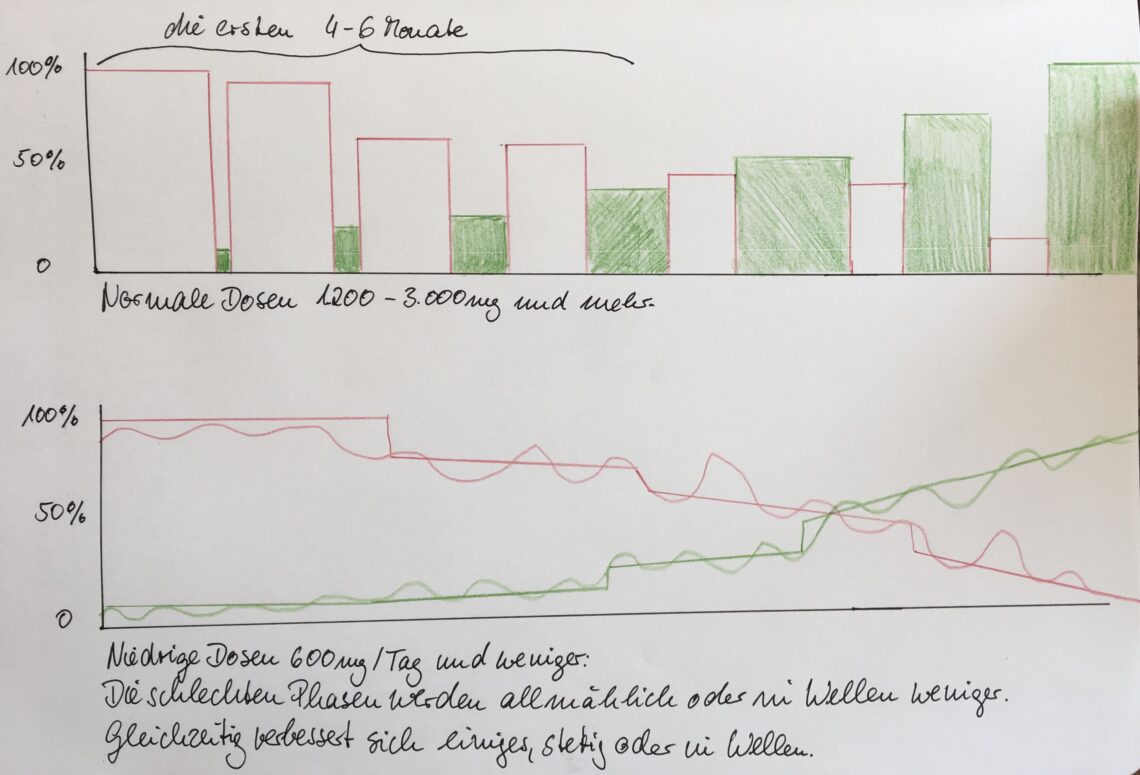 die ersten 4-6 Monate
100%
50%
0
Normale Dosen 1200 - 3.000mg und mehr.
100%
50%
0
Niedrige Dosen 600mg/Tag und weniger:
Die schlechten Phasen werden allmählich oder in Wellen weniger.
Gleichzeitig verbessert sich einiges, stetig oder in Wellen.